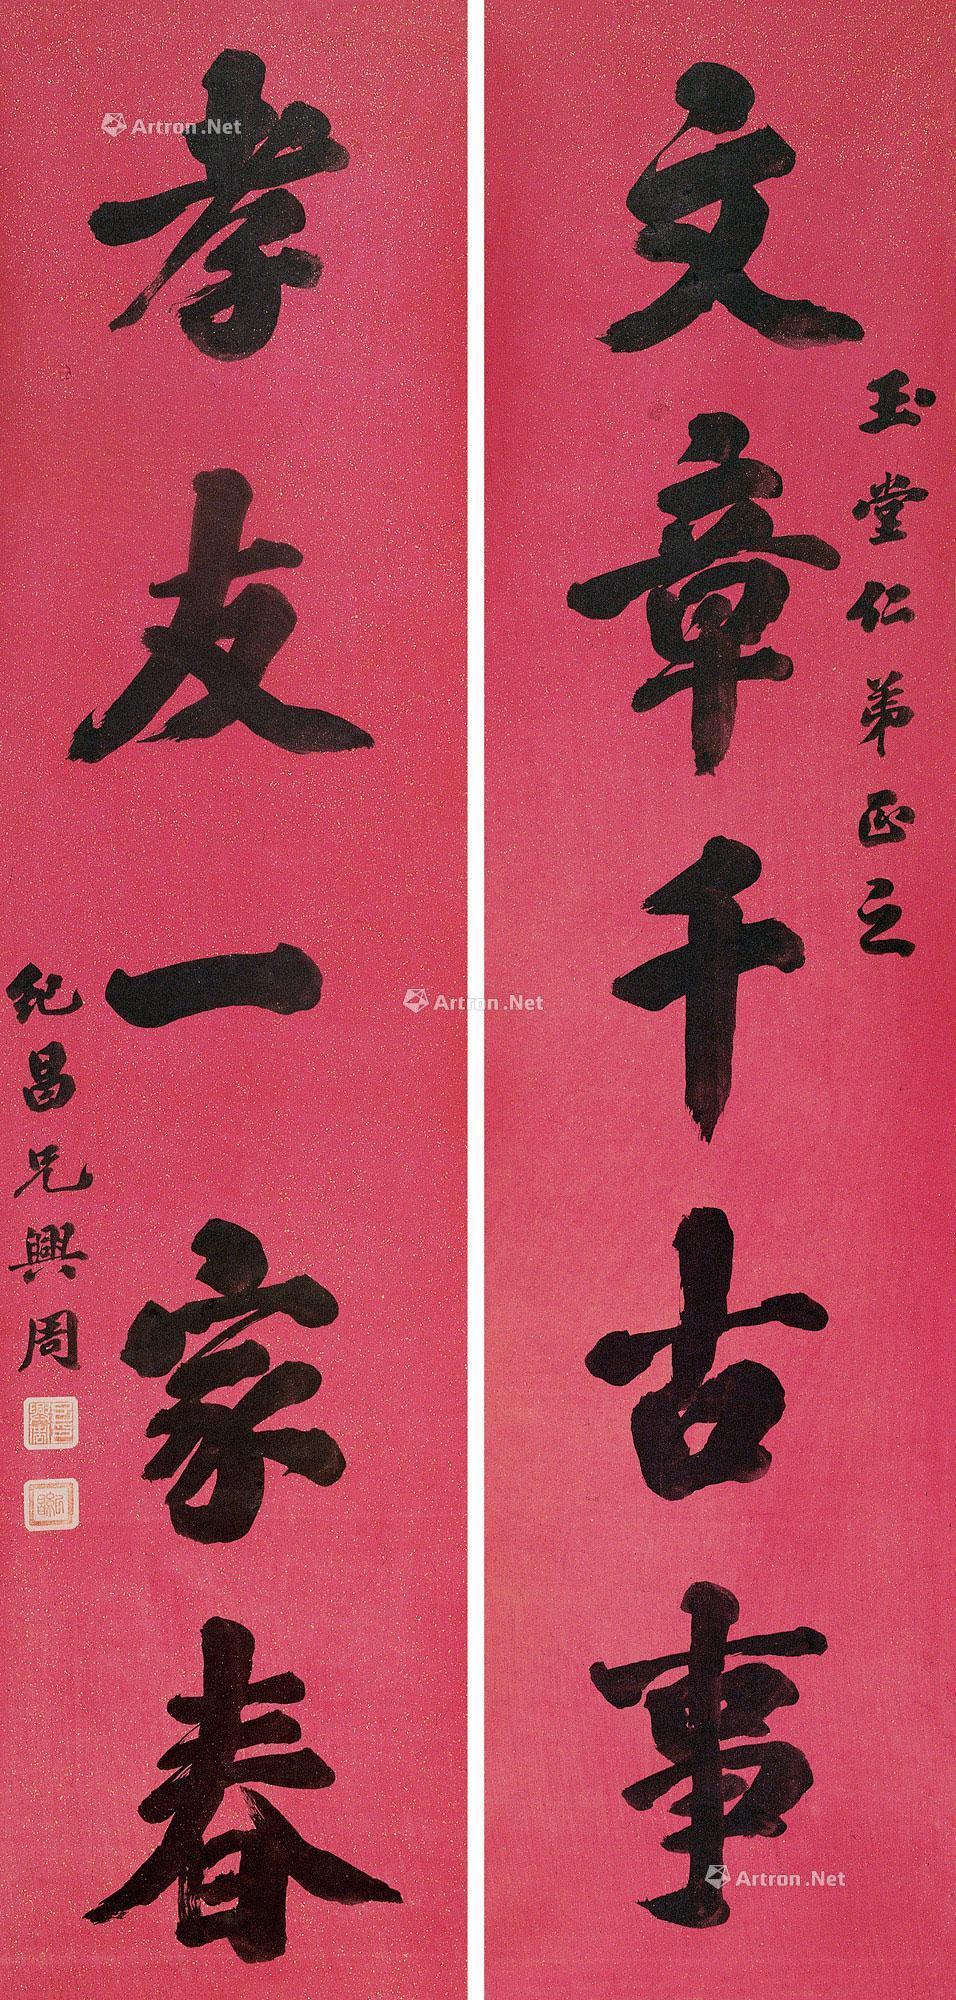 玉堂仁弟正之
文章千古事
孝友一家春
纪昌兄興周
Artron.Net
Artron.Net
Artron.Net